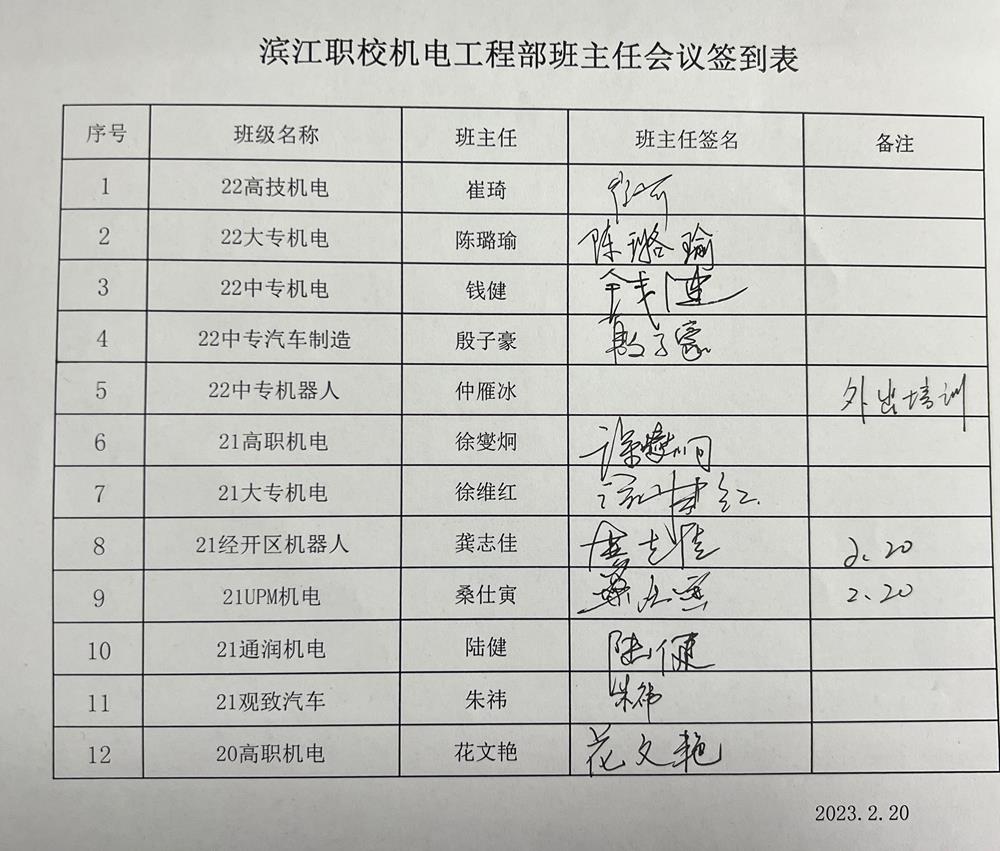 滨江职校机电工程部班主任会议签到表
序号 班级名称 班主任 班主任签名 备注
1 22高技机电 崔琦 崔琦
2 22大专机电 陈璐瑜 陈璐瑜
3 22中专机电 钱健 钱健
4 22中专汽车制造 殷子豪 殷子豪
5 22中专机器人 仲雁冰 外出培训
6 21高职机电 徐燮炯 徐燮炯
7 21大专机电 徐维红 徐维红
8 21经开区机器人 龚志佳 龚志佳 2.20
9 21UPM机电 桑仕寅 桑仕寅 2.20
10 21通润机电 陆健 陆健
11 21观致汽车 朱祎 朱祎
12 20高职机电 花文艳 花文艳
2023.2.20